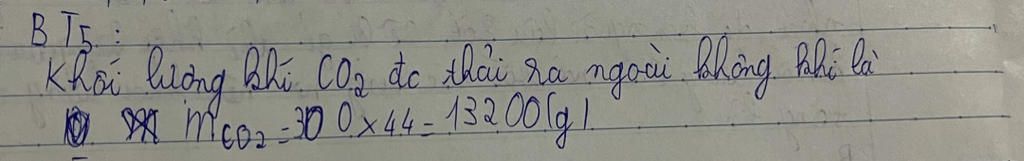 BT5:
Khối lượng khí CO₂ đc thải ra ngoài không khí là
m CO₂ = 300 x 44 = 13200 (g)